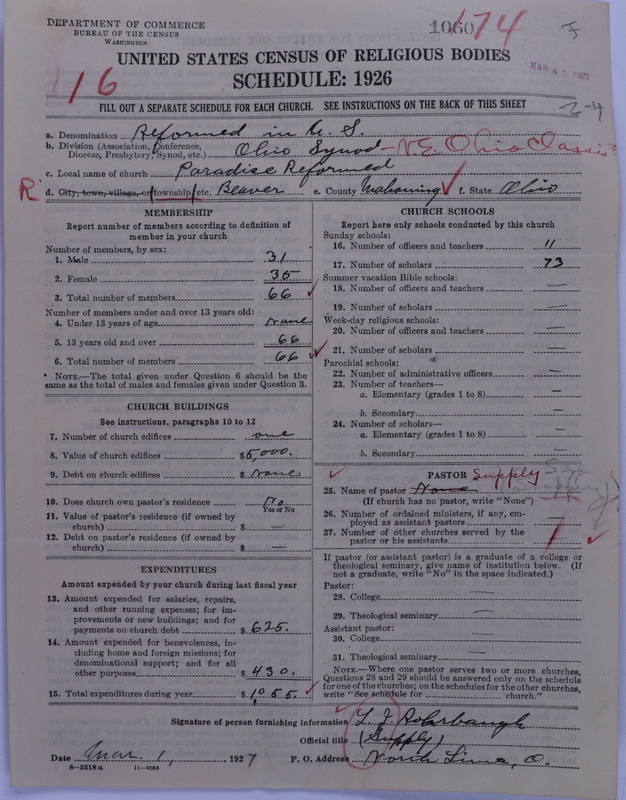 DEPARTMENT OF COMMERCE
BUREAU OF THE CENSUS
WASHINGTON
1060
174
UNITED STATES CENSUS OF RELIGIOUS BODIES
116
SCHEDULE: 1926
MAR 4 1927
FILL OUT A SEPARATE SCHEDULE FOR EACH CHURCH. SEE INSTRUCTIONS ON THE BACK OF THIS SHEET
2-4
a. Denomination Reformed in U. S.
b. Division (Association, Conference, Diocese, Presbytery, Synod, etc.) Ohio Synod - N.E. Ohio Classis
c. Local name of church Paradise Reformed
R d. City, town, village, or township, etc. Beaver e. County Mahoning f. State Ohio
MEMBERSHIP
Report number of members according to definition of
member in your church
Number of members, by sex:
1. Male 31
2. Female 35
3. Total number of members 66
Number of members under and over 13 years old:
4. Under 13 years of age None
5. 13 years old and over 66
6. Total number of members 66
* NOTE.—The total given under Question 6 should be the
same as the total of males and females given under Question 3.
CHURCH BUILDINGS
See instructions, paragraphs 10 to 12
7. Number of church edifices one
8. Value of church edifices $5,000.
9. Debt on church edifices $ None
10. Does church own pastor's residence No
Yes or No
11. Value of pastor's residence (if owned by
church) $ —
12. Debt on pastor's residence (if owned by
church) $ —
EXPENDITURES
Amount expended by your church during last fiscal year
13. Amount expended for salaries, repairs,
and other running expenses; for im-
provements or new buildings; and for
payments on church debt $ 625.
14. Amount expended for benevolences, in-
cluding home and foreign missions; for
denominational support; and for all
other purposes $ 430.
15. Total expenditures during year $ 1,055
CHURCH SCHOOLS
Report here only schools conducted by this church
Sunday schools:
16. Number of officers and teachers 11
17. Number of scholars 73
Summer vacation Bible schools:
18. Number of officers and teachers —
19. Number of scholars —
Week-day religious schools:
20. Number of officers and teachers —
21. Number of scholars —
Parochial schools:
22. Number of administrative officers —
23. Number of teachers—
a. Elementary (grades 1 to 8) —
b. Secondary —
24. Number of scholars—
a. Elementary (grades 1 to 8) —
b. Secondary —
PASTOR Supply
25. Name of pastor None
(If church has no pastor, write "None")
26. Number of ordained ministers, if any, em-
ployed as assistant pastors —
27. Number of other churches served by the
pastor or his assistants
If pastor (or assistant pastor) is a graduate of a college or
theological seminary, give name of institution below. (If
not a graduate, write "No" in the space indicated.)
Pastor:
28. College —
29. Theological seminary —
Assistant pastor:
30. College —
31. Theological seminary —
NOTE.—Where one pastor serves two or more churches,
Questions 28 and 29 should be answered only on the schedule
for one of the churches; on the schedules for the other churches,
write "See schedule for church."
Signature of person furnishing information L. J. Rohrbaugh
Official title (Supply)
Date Mar. 1, 1927 P. O. Address North Lima, O.
8—5518 a 11—9034